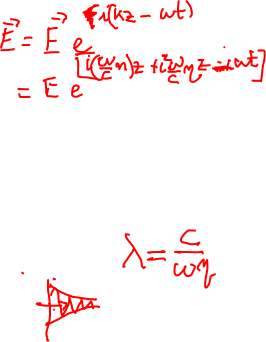 E⃗ = E⃗ e^{i(kz - ωt)}
= E e^{[i(ω/c n)z + i² ω/c η z - iωt]}
λ = c/ωη